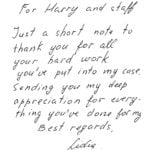 For Harry and staff
Just a short note to
thank you for all
your hard work
you've put into my case.
Sending you my deep
appreciation for every-
thing you've done for my
Best regards,